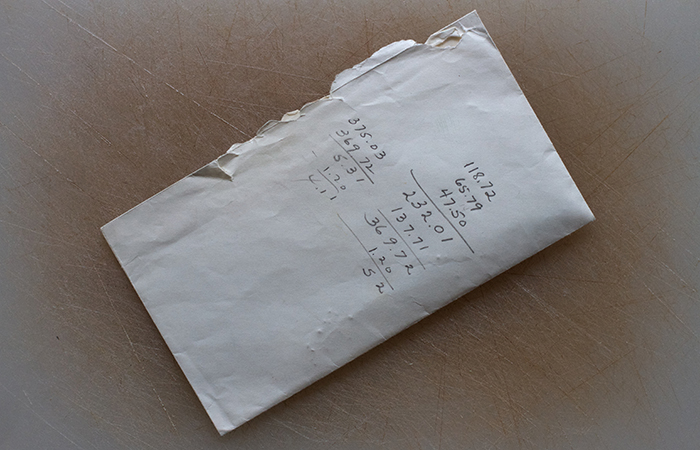 375.03
369.72
5.31
1.20
4.11
118.72
65.79
47.50
232.01
137.71
369.72
1.20
52